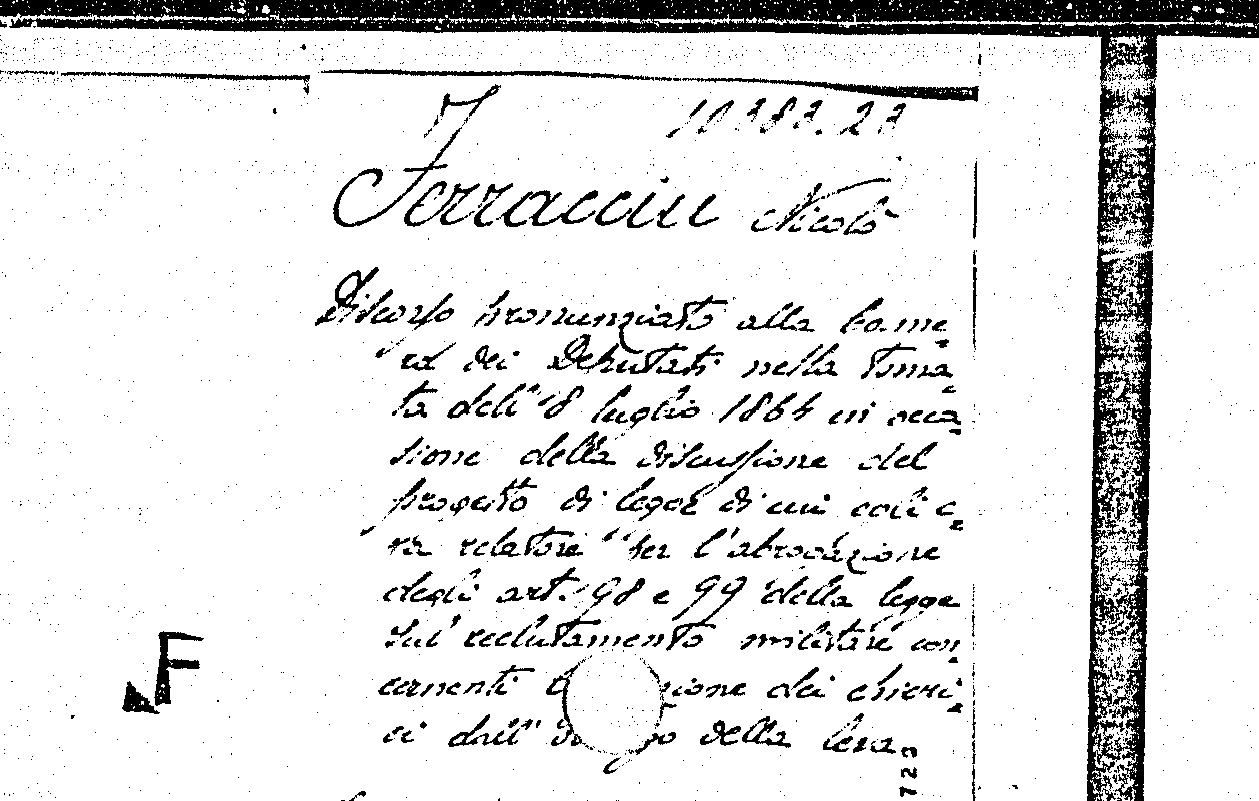 F
10383.23
Ferracciu Nicolò
Discorso pronunziato alla Came-
ra dei Deputati nella torna-
ta dell' 8 luglio 1864 in occa-
sione della discussione del
progetto di legge di cui egli e-
ra relatore "per l'abrogazione
degli art. 98 e 99 della legge
sul reclutamento militare con-
cernenti zione dei chieri-
ci dall' della leva
723
F